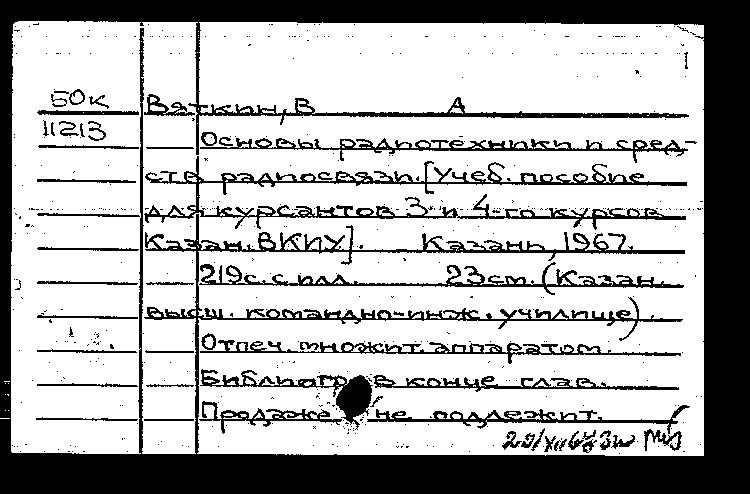 БОК Вяткин, В А
11213 Основы радиотехники и сред-
ств радиосвязи. [Учеб. пособие
для курсантов 3- и 4-го курсов
Казан. ВКИУ]. Казань, 1967.
219с. с илл. 23см. (Казан.
высш. командно-инж. училище).
Отпеч. множит. аппаратом.
Библиогр. в конце глав.
Продаже не подлежит.